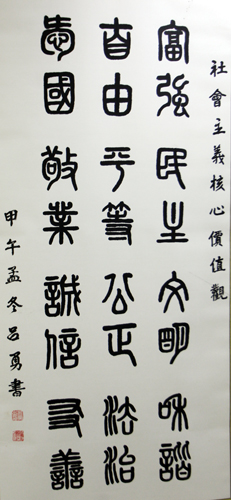 社會主義核心價值觀
富強民主文明和諧
自由平等公正法治
愛國敬業誠信友善
甲午孟冬呂勇書